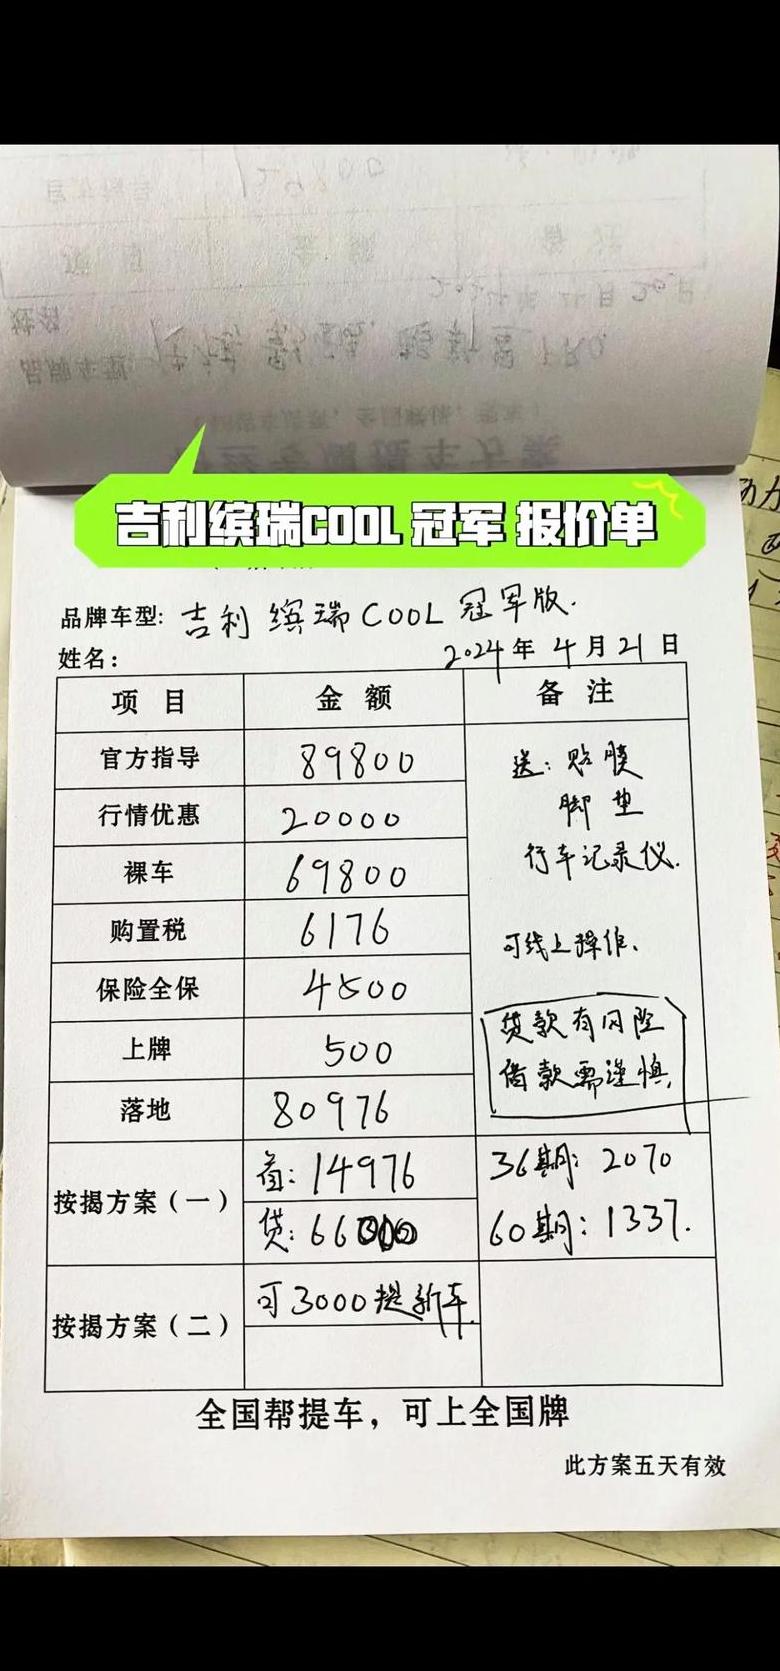 吉利缤瑞COOL 冠军 报价单
品牌车型: 吉利 缤瑞COOL 冠军版.
姓名:
2024年 4月 21日
项 目 金 额 备 注
官方指导 89800 送: 贴膜
行情优惠 20000 脚垫
裸车 69800 行车记录仪.
购置税 6176 可线上操作.
保险全保 4500 贷款有风险
上牌 500 借款需谨慎.
落地 80976
按揭方案(一) 首: 14976 36期: 2070
贷: 66000 60期: 1337.
按揭方案(二) 可3000提新车.
全国帮提车, 可上全国牌
此方案五天有效